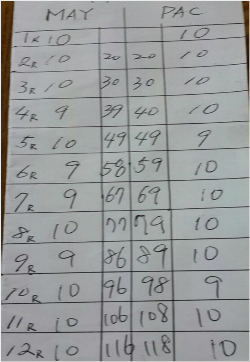 MAY PAC
1R 10 10
2R 10 20 20 10
3R 10 30 30 10
4R 9 39 40 10
5R 10 49 49 9
6R 9 58 59 10
7R 9 67 69 10
8R 10 77 79 10
9R 9 86 89 10
10R 10 96 98 9
11R 10 106 108 10
12R 10 116 118 10